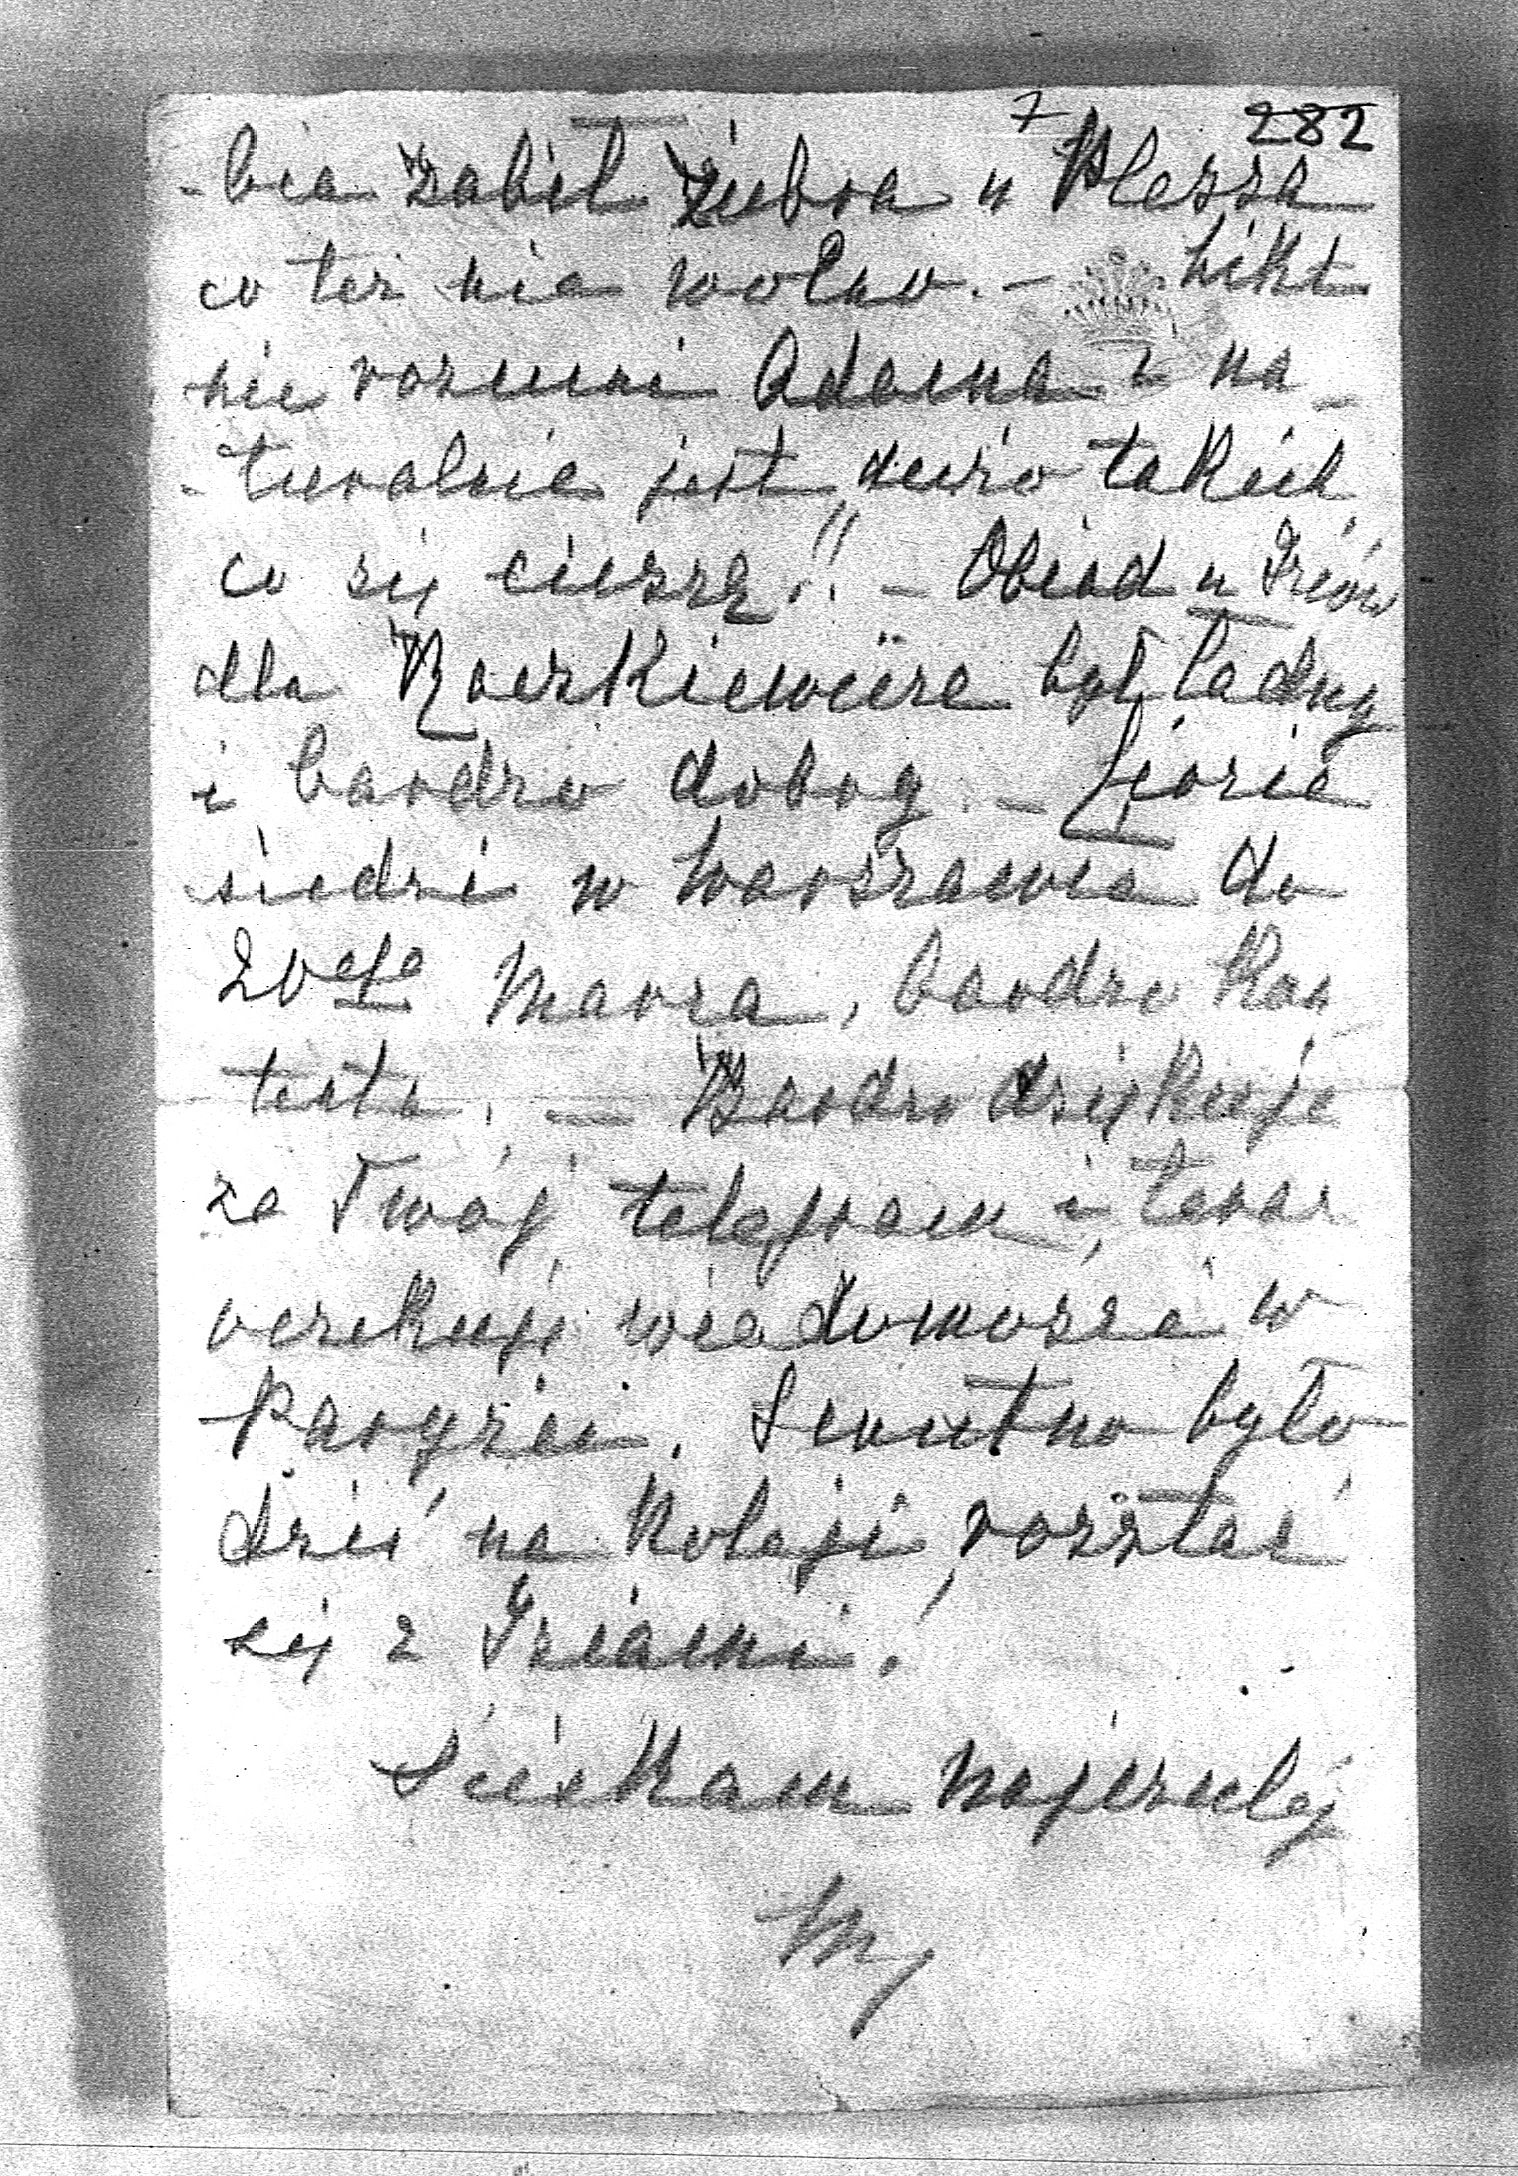 7 282
-bie zabił żubra u Plessa
co też nie wolno. - Nikt
nie rozumi Adama i na-
-turalnie jest dużo takich
co się cieszą!! - Obiad u Iziów
dla był ładny
i bardzo dobry. -
siedzi w Warszawie do
20ego Marca, bardzo kon
tenta. - Bardzo dziękuje
za Twój telegram i teraz
oczekuję wiadomości w
Paryżu. Smutno było
dziś na koleji rozstać
się z Iziami.
Ściskam najczulej
My